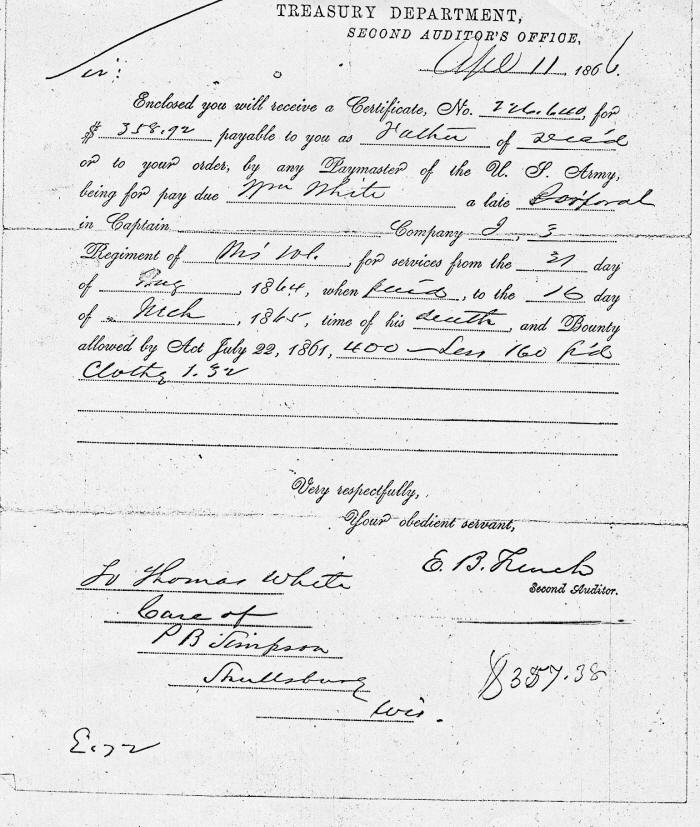 TREASURY DEPARTMENT,
SECOND AUDITOR'S OFFICE,
Apl 11 1866.
Sir:
Enclosed you will receive a Certificate, No. 226.640, for
$ 358.92 payable to you as Father of dec'd
or to your order, by any Paymaster of the U. S. Army,
being for pay due Wm White a late Corporal
in Captain Company I, 3
Regiment of Wis' Vol., for services from the 31 day
of Aug, 1864, when paid, to the 16 day
of Mch, 1865, time of his death, and Bounty
allowed by Act July 22, 1861, 400 – Less 160 p'd
Clothg 1.32
Very respectfully,
Your obedient servant,
E. B. French
Second Auditor.
To Thomas White
Care of
P B Simpson
Shullsburg
Wis.
$357.38